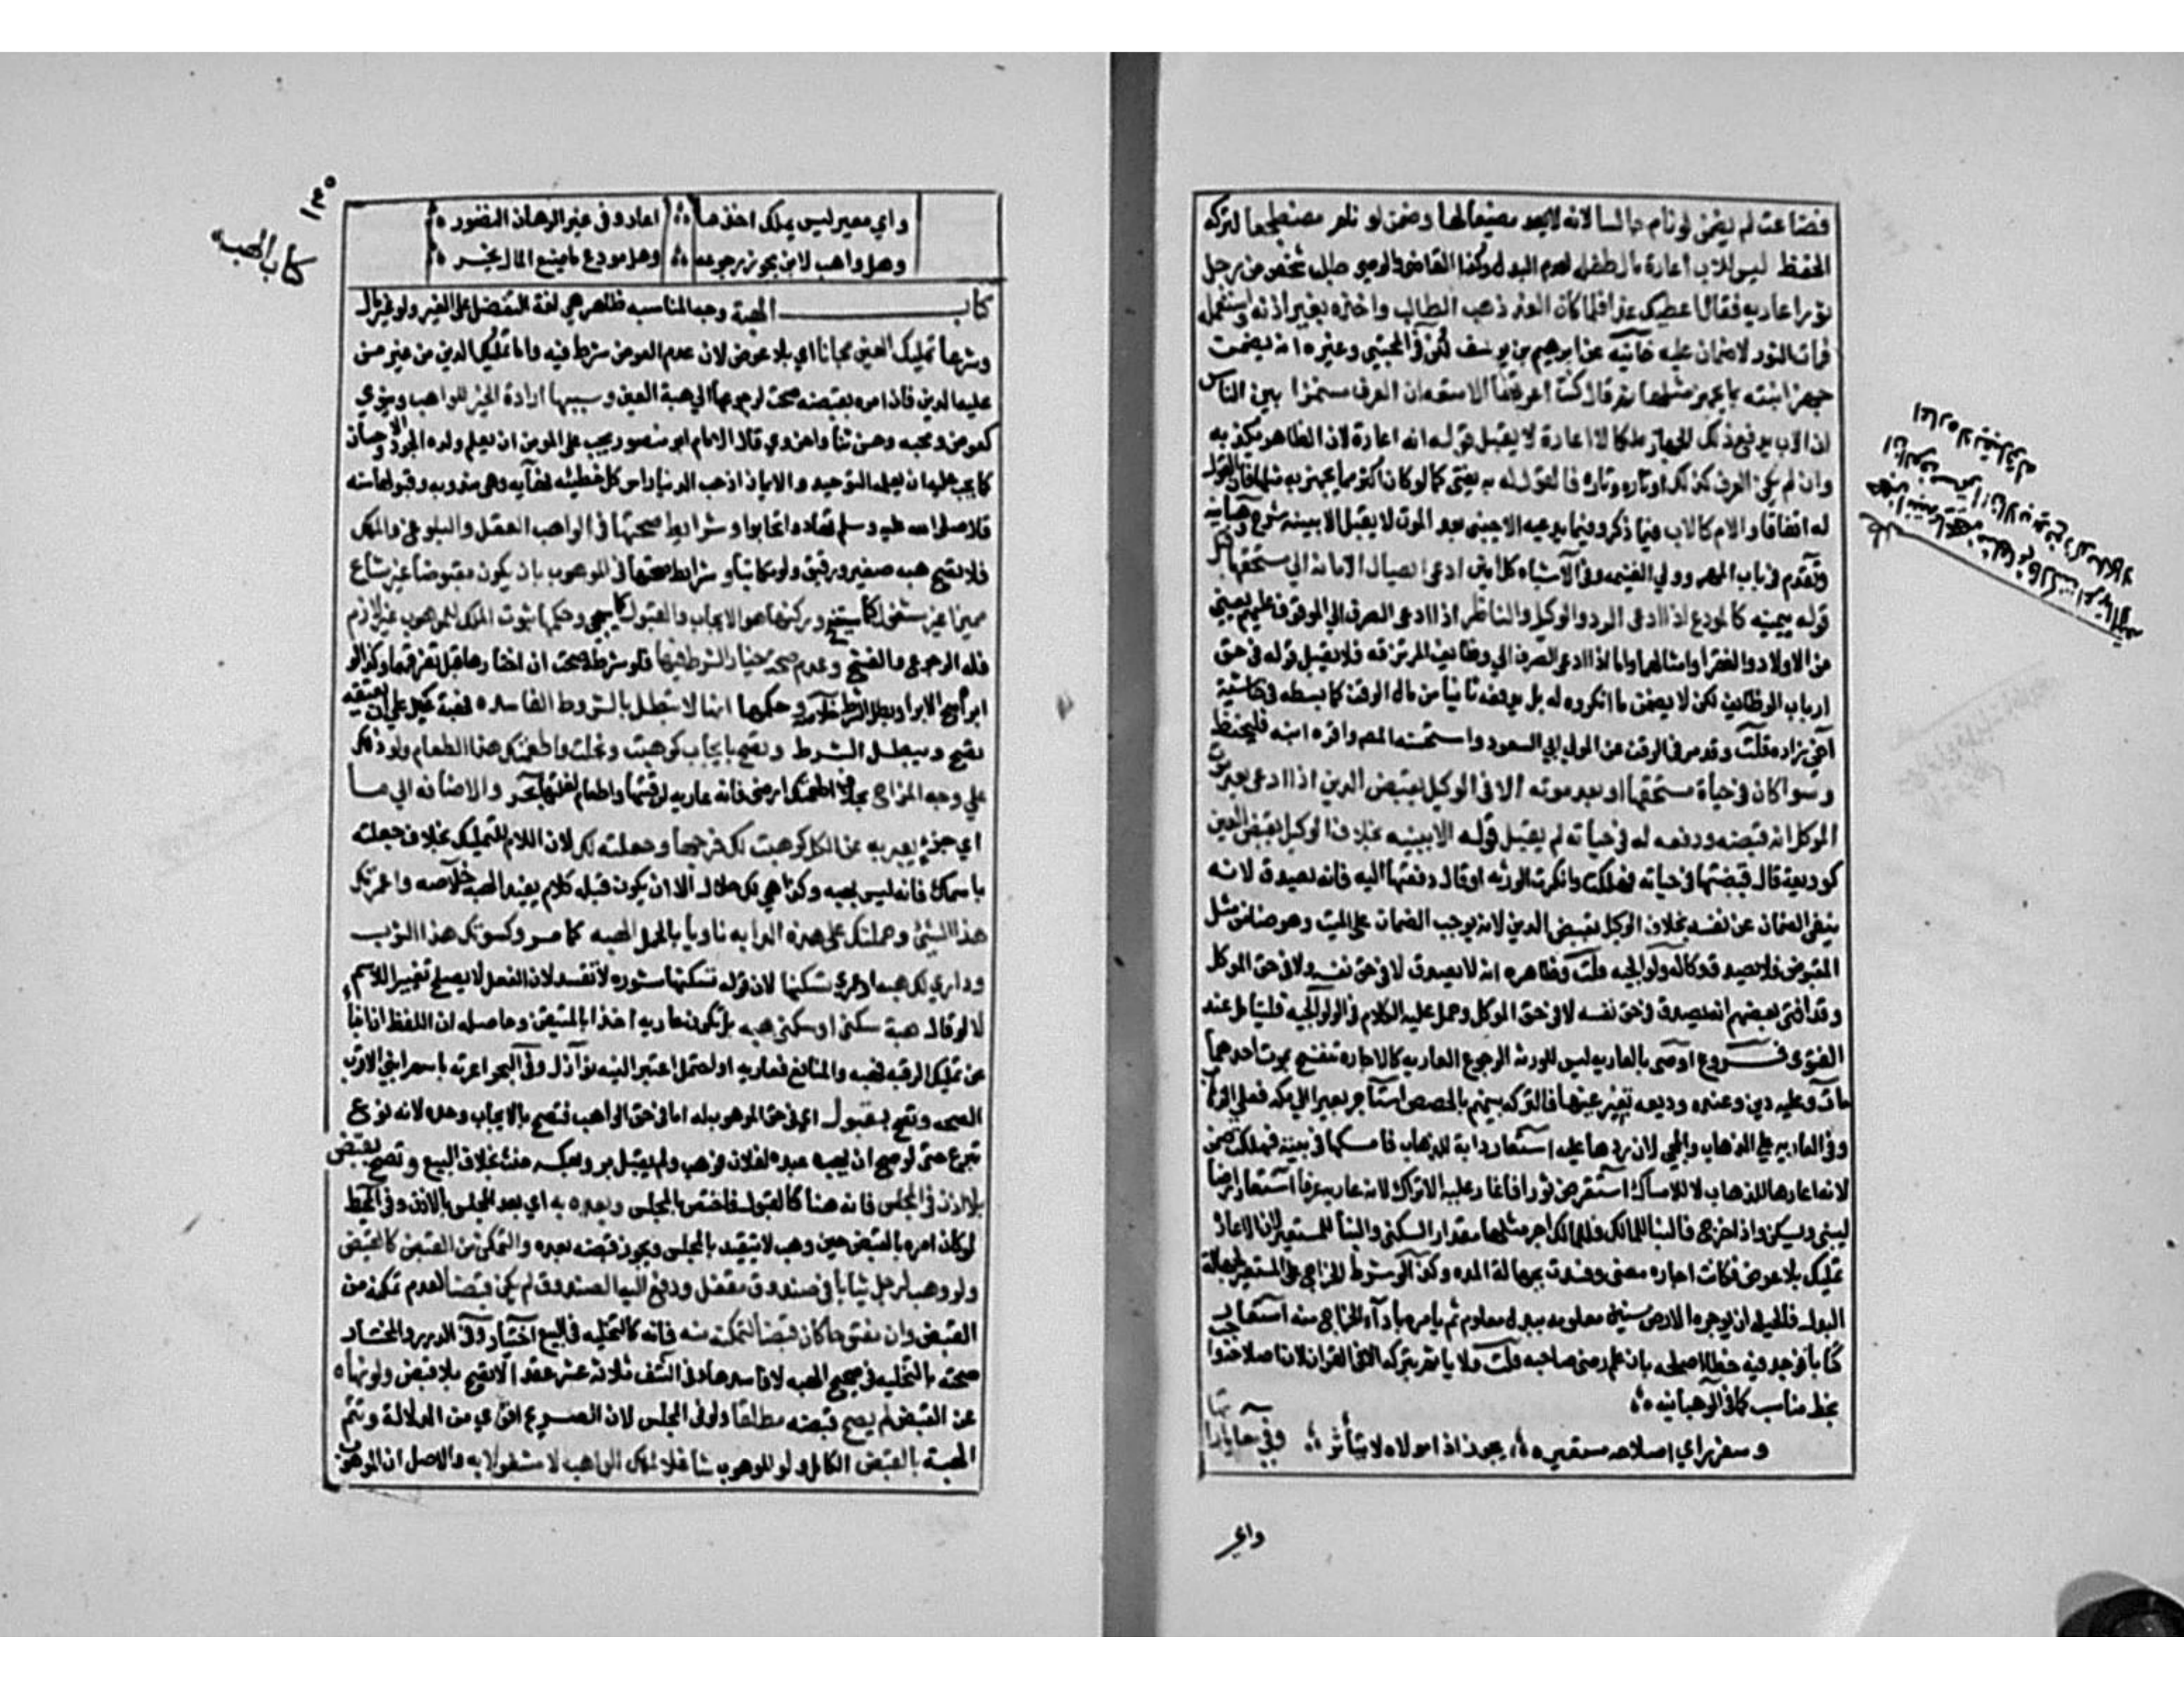 فضاعت لم يضمن لو نام جالسا لانه لا يعد مضيعا لها وضمن لو نام مضطجعا لتركه
الحفظ ليس للاب اعارة مال طفله لعدم البدل وكذا القاضي والوصي طلب شخص من رجل
ثورا عارية فقال اعطيك غدا فلما كان الغد ذهب الطالب واخذه بغير اذنه واستعمله
فمات الثور لا ضمان عليه خانيه عن ابرهيم بن يوسف لكن في المجتبي وغيره انه يضمن
جهز ابنته بما يجهز مثلها ثم قال كنت اعرتها الامتعه ان العرف مستمرا بين الناس
ان الاب يدفع ذلك الجهاز ملكا لا اعارة لا يقبل قوله انه اعارة لان الظاهر يكذبه
وان لم يكن العرف كذلك او تاره وتاره فالقول له به يفتي كما لو كان اكثر مما يجهز به مثلها فان القول
له اتفاقا والام كالاب فيما ذكر وفيما يدعيه الاجنبي بعد الموت لا يقبل الا ببينه شرح وهبانيه
وتقدم في باب المهر وفي الاشباه كل امين ادعي ايصال الامانة الي مستحقها قبل
قوله بيمينه كالمودع اذا ادعي الرد والوكيل والناظر اذا ادعي الصرف الي الموقوف عليهم يعني
من الاولاد والفقرا وامثالهما واما اذا ادعي الصرف الي وظائف المرتزقه فلا يقبل قوله في حق
ارباب الوظائف لكن لا يضمن ما انكروه له بل يدفعه ثانيا من مال الوقف كما بسطه في حاشية
اخي زاده قلت وقد مر في الوقف عن المولي ابي السعود واستحسنه المصـ واقره ابنه فليحفظ
وسوا كان في حياة مستحقها او بعد موته الا في الوكيل بقبض الدين اذا ادعي بعد موت
الموكل انه قبضه ودفعه له في حياته لم يقبل قوله الا ببينه بخلاف الوكيل بقبض العين
كوديعة قال قبضتها في حياته فهلكت وانكرت الورثه او قال دفعتها اليه فانه يصدق لانه
ينفي الضمان عن نفسه بخلاف الوكيل بقبض الدين لانه يوجب الضمان علي الميت وهو ضمان مثل
المقبوض فلا يصدق وكاله ولوالجيه قلت وظاهره انه لا يصدق لا في حق نفسه ولا في حق الموكل
وقد افتي بعضهم انه يصدق في حق نفسه لا في حق الموكل وحمل عليه الكلام في الولوالجيه فليتامل عند
الفتوي فروع اوصي بالعاريه ليس للورثه الرجوع العاريه كالاجاره تنفسخ بموت احدهما
مات وعليه دين وعنده وديعه بغير عينها فالتركه بينهم بالحصص استاجر بعيرا الي مكه فعلي الذهاب
وفي العاريه علي الذهاب والمجي لان ردها عليه استعار دابة للذهاب فامسكها في بيته فهلكت ضمن
لانه اعارها للذهاب لا للامساك استقرض ثورا فاغار عليه الاتراك لانه عاريه عرفا استعار ارضا
ليبني ويسكن واذا خرج فالبنا للمالك فللمالك اجر مثلها مقدار السكني والبنا للمستعير لان الاعاره
تمليك بلا عوض فكانت اجاره معني وفسدت بجهالة المده وكذا لو شرط الخراج علي المستعير لجهالة
البدل فالحيله ان يوجره الارض سنين معلومه ببدل معلوم ثم يامره باداء الخراج منه استعار
كتابا فوجد فيه خطا اصلحه بان علم رضي صاحبه قلت ولا ياثم بتركه الا في القران لان اصلاحه واجب
بخط مناسب كما في الوهبانيه
وسفر راي اصلاحه مستعيره يجوز اذا مولاه لا يتأثر وفي معاياتها
واي
كتاب الهبه
واي معير ليس يملك اخذ ما اعار وفي غير الرهان التصور
وهل واهب لابن يجوز رجوعه وهل مودع ما ضيع المال يخسر
كتاب الهبة وجه المناسبه ظاهر هي لغة التفضل علي الغير ولو غير مال
وشرعا تمليك العين مجانا اي بلا عوض لان عدم العوض شرط فيه واما تمليك الدين من غير من
عليه الدين فان امره بقبضه صحت لرجوعها الي هبة العين وسببها ارادة الخير للواهب دنيوي
كعوض ومحبه وحسن ثنا واخروي قال الامام ابو منصور يجب علي المومن ان يعلم ولده الجود والاحسان
كما يجب عليه ان يعلمه التوحيد والايمان اذ حب الدنيا راس كل خطيئه نهايه وهي مندوبه وقبولها سنه
قال صلي الله عليه وسلم تهادوا تحابوا وشرايط صحتها في الواهب العقل والبلوغ والملك
فلا تصح هبه صغير ورقيق ولو مكاتبا وشرايط صحتها في الموهوب ان يكون مقبوضا غير مشاع
مميزا غير مشغول كما سيتضح وركنها هو الايجاب والقبول كما سيجي وحكمها ثبوت الملك للموهوب غير لازم
فله الرجوع والفسخ وعدم صحة خيار الشرط فيها فلو شرطه صحت ان اختارها قبل تفرقهما وكذا لو
ابرأه صح الابرا وبطل الشرط خلاصه وحكمها انها لا تبطل بالشروط الفاسده فهبة عبد علي ان يعتقه
تصح ويبطل الشرط وتصح بايجاب كوهبت ونحلت واطعمتك هذا الطعام ولو ذلك
علي وجه المزاح بخلاف اطعمتك ارضي فانه عاريه لرقبتها واطعام لغلتها بحر والاضافه الي ما
اي جزء يعبر به عن الكل كوهبت لك فرجها وجعلته لك لان اللام للتمليك بخلاف جعلته
باسمك فانه ليس بهبه وكذا هي لك حلال الا ان يكون قبله كلام يفيد الهبه خلاصه واعمرتك
هذا الشيئ وحملتك علي هذه الدابه ناويا بالحمل الهبه كما مر وكسوتك هذا الثوب
وداري لك هبه او عمري تسكنها لان قوله تسكنها مشوره لا تفسد لان الفعل لا يصلح تفسيرا للاسم
لا لو قال هبة سكني او سكني هبه بل تكون عاريه اخذا بالمتيقن وحاصله ان اللفظ ان انبأ
عن تمليك الرقبه فهبه والمنافع فعاريه او احتمل اعتبر النيه نوازل وفي البحر اغرسه باسم ابني الاقرب
الصحه وتصح بقبول اي في حق الموهوب له اما في حق الواهب فتصح بالايجاب وحده لانه نوع
تبرع حتي لو حلف ان يهب عبده لفلان فوهب ولم يقبل بر وبعكسه حنث بخلاف البيع وتصح بقبض
بلا اذن في المجلس فانه هنا كالقبول فاختص بالمجلس وبعده به اي بعد المجلس بالاذن وفي المحيط
لو كان امره بالقبض حين وهب لا يتقيد بالمجلس ويجوز قبضه بعده والتمكن من القبض كالقبض
ولو وهب لرجل ثيابا في صندوق مقفل ودفع اليه الصندوق لم يكن قبضا لعدم تمكنه من
القبض وان مفتوحا كان قبضا لتمكنه منه فانه كالتخليه في البيع اختيار وفي الدرر والمختار
صحته بالتخليه في صحيح الهبه لا فاسدها وفي النتف ثلاثة عشر عقدا لا تصح بلا قبض ولو نهاه
عن القبض لم يصح قبضه مطلقا ولو في المجلس لان الصريح اقوي من الدلالة وتتم
الهبة بالقبض الكامل ولو الموهوب شاغلا لملك الواهب لا مشغولا به والاصل ان الموهوب